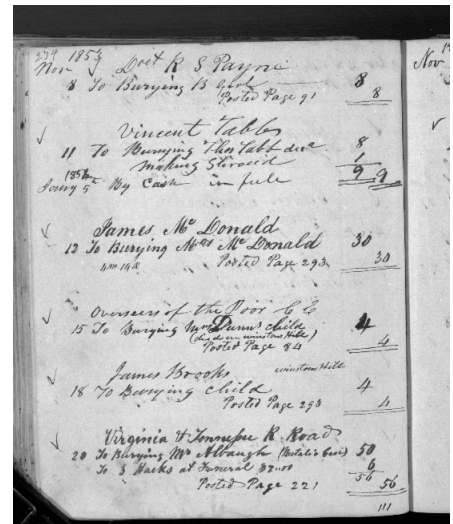 279 1853
Nov Doct R S Payne
8 To Burying B Girl 8
Posted Page 91 8
Vincent Tabbs
11 To Burying Thos Tabb decd 8
making Shroud 1
9 9
1854
Jany 5th By Cash in full
James Mc Donald
12 To Burying Mrs Mc Donald 30
Posted Page 293 30
Overseers of the Poor C C
15 To Burying Mrs Dunn's child 4
(died on winston Hill)
Posted Page 84 4
James Brooks winston Hill
18 To Burying child 4
Posted Page 293 4
Virginia & Tennessee R. Road
20 To Burying Mr Albaugh 50
To 3 Hacks at Funeral $2.00 6
56
Posted Page 221 56
111
Nov